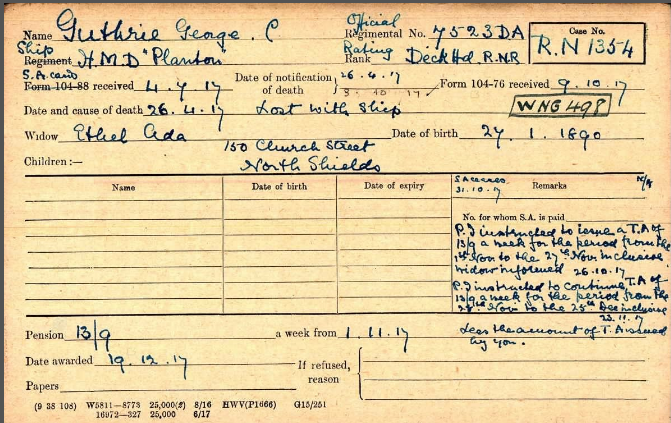 Name Guthrie George. C Official Regimental No. 7523DA Case No. R.N 1354
Ship Regiment H.M.D "Planton" Rating Rank Deck Hd. R.N.R
S.A. card Form 104-88 received 4.7.17 Date of notification of death 26.4.17 Form 104-76 received 9.10.17
3 10 17
Date and cause of death 26.4.17 Lost with Ship WNG 498
Widow Ethel Ada Date of birth 27.1.1890
150 Church Street
Children:— North Shields
Name Date of birth Date of expiry Remarks
31.10.17
No. for whom S.A. is paid
P.I instructed to issue a T.A of
13/9 a week for the period from the
1st Nov to the 27th Nov inclusive
widow informed 26.10.17
P.I instructed to continue T.A of
13/9 a week for the period from the
28th Nov to the 25th Dec inclusive
23.11.17
Less the amount of T.A issued
by you.
Pension 13/9 a week from 1.11.17
Date awarded 19.12.17 If refused, reason
Papers
(9 38 103) W5811—8773 25,000(2) 8/16 HWV(P1666) G15/251
16972—327 25,000 6/17